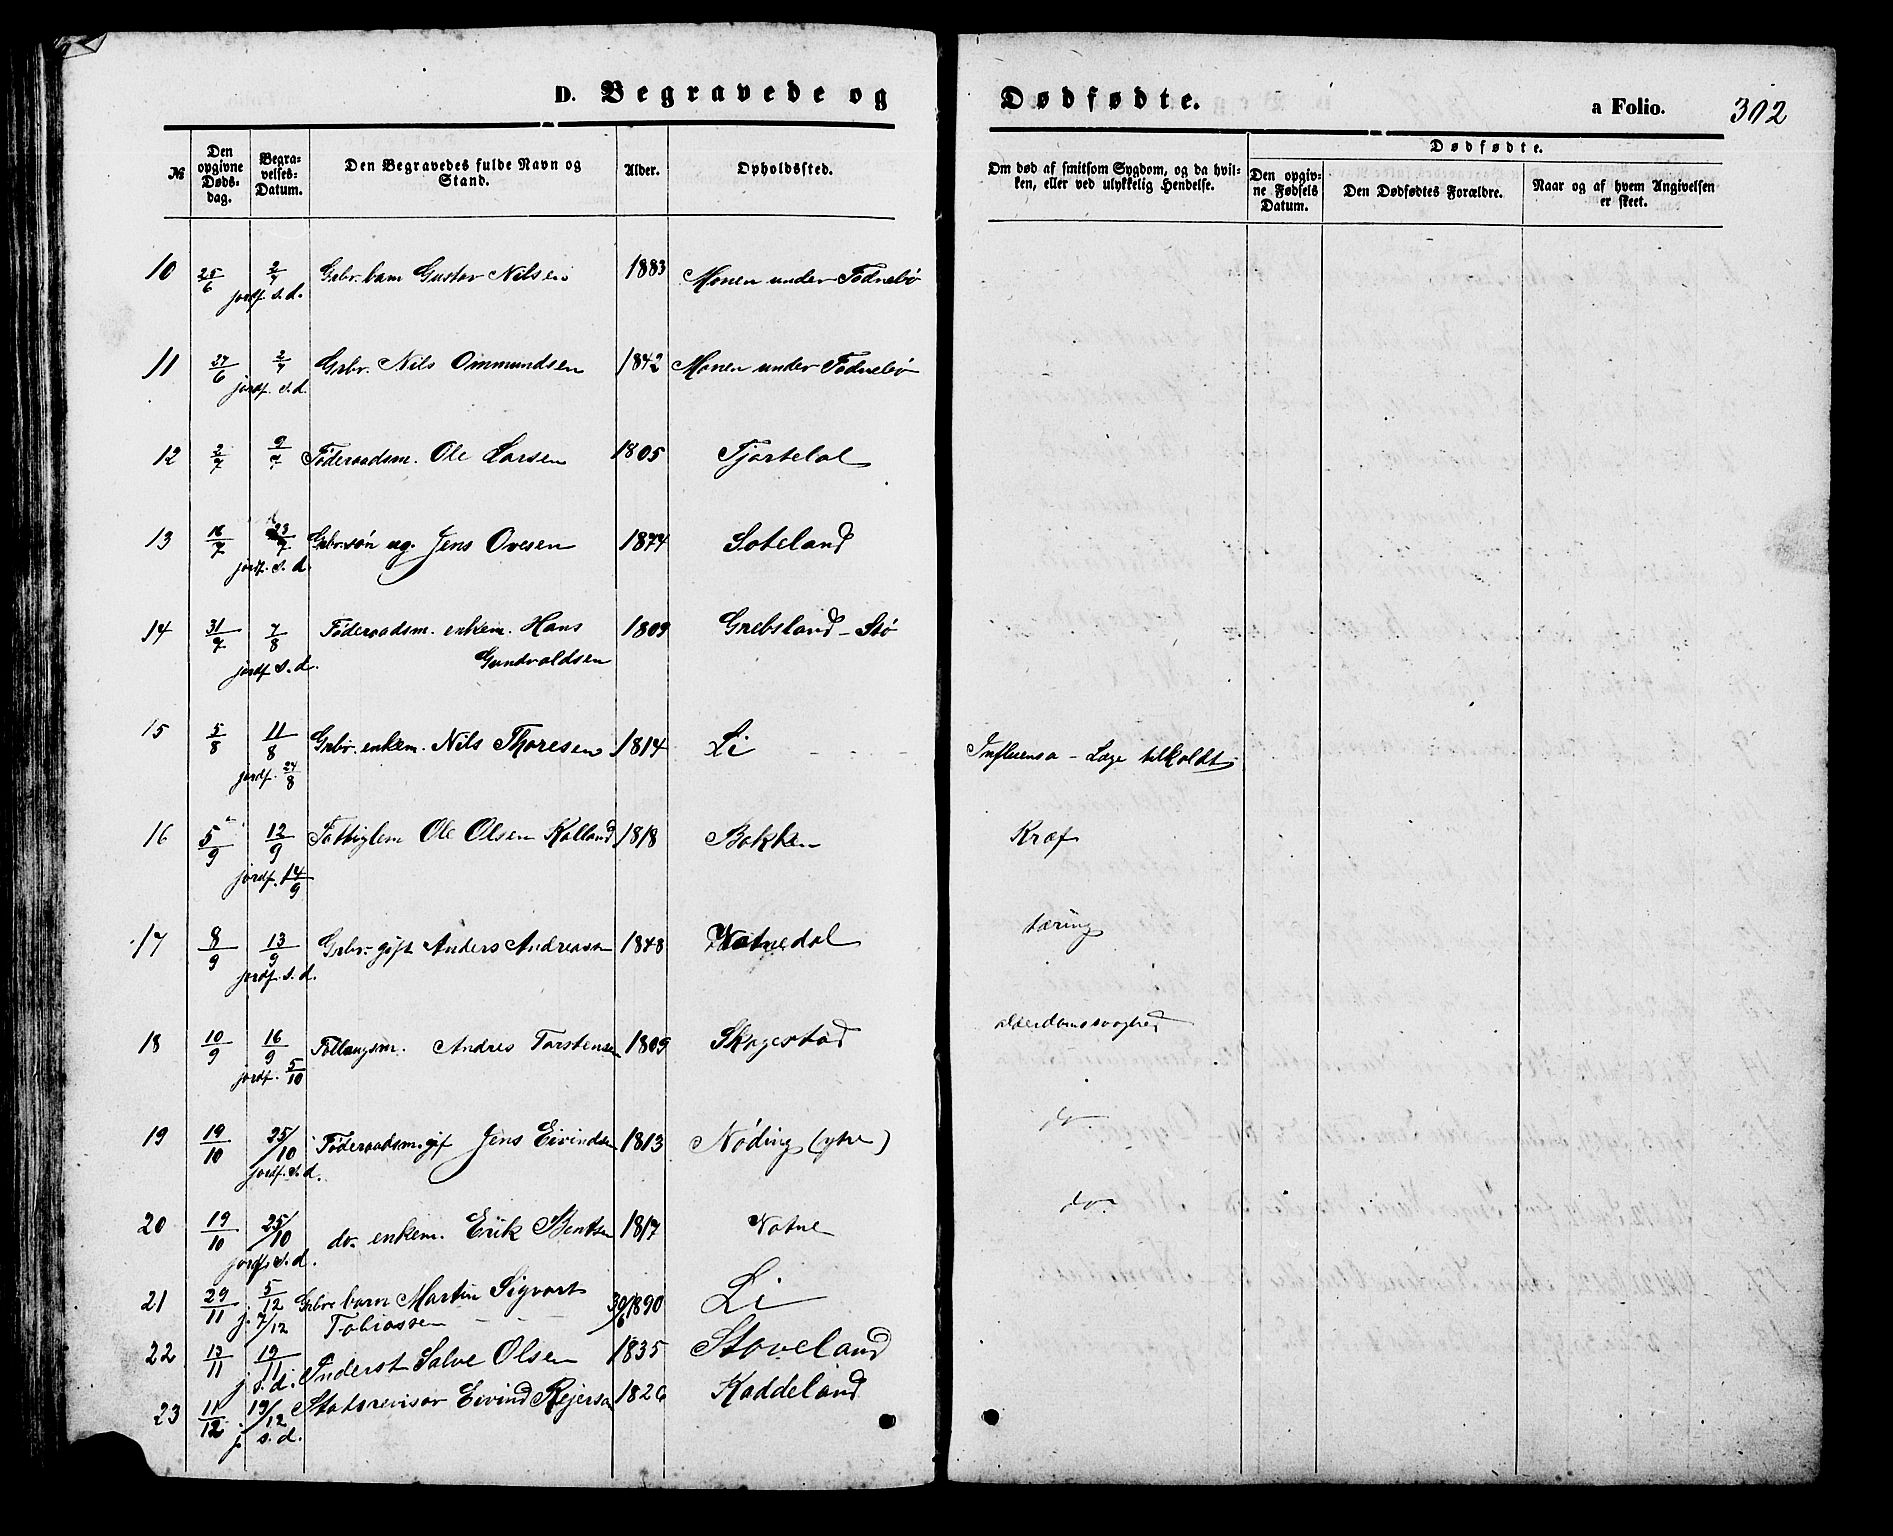 D. Begravede og Dødfødte. a Folio. 302
№ Den opgivne Døds-dag. Begra-velses-Datum. Den Begravedes fulde Navn og Stand. Alder. Opholdssted. Om død af smitsom Sygdom, og da hvil-ken, eller ved ulykkelig Hendelse. Dødfødte.
Den opgiv-ne Fødsels Datum. Den Dødfødtes Forældre. Naar og af hvem Angivelsen er skeet.
10 25/6 2/7 Grbr. barn Gustav Nilsen 1883 Monen under Fodnebø
jordf. s.d.
11 27/6 2/7 Grbr. Nils Ommundsen 1842 Monen under Fodnebø
jordf. s.d.
12 2/7 9/7 Föderaadsm. Ole Larsen 1805 Tjorteland
13 16/7 23/7 Grbr.søn ug. Jens Ovesen 1874 Soteland
jordf. s.d.
14 31/7 7/8 Föderaadsm. enkem. Hans 1809 Grebsland-Stø
jordf. s.d. Gundvaldsen
15 5/8 11/8 Grbr. enkem. Nils Thoresen 1814 Li Influensa - Læge tilkaldt
jordf. 24/8
16 5/9 12/9 Fattiglem Ole Olsen Kalland 1818 Bakken Kræf
jordf. 14/9
17 8/9 13/9 Grbr. gift Anders Andreassen 1848 Vatnedal tæring
jordf. s.d.
18 10/9 16/9 Follaugsm. Andres Torstensen 1809 Skagestad alderdomssvaghed
jordf. 5/10
19 19/10 25/10 Föderaadsm. gif Jens Eivindsen 1813 Nöding (ytre) do
jordf. s.d.
20 19/10 25/10 do. enkem. Erik Bentsen 1817 Vatne do.
jordf. s.d.
21 29/11 5/12 Grbr barn Martin Sigvart 1890 Li
j. 7/12 Tobiassen
22 13/11 19/11 Inderst Salve Olsen 1835 Stoveland
j s.d.
23 11/12 19/12 Stadsrevisor Eivind Rejersen 1826 Kaddeland
j. s.d.